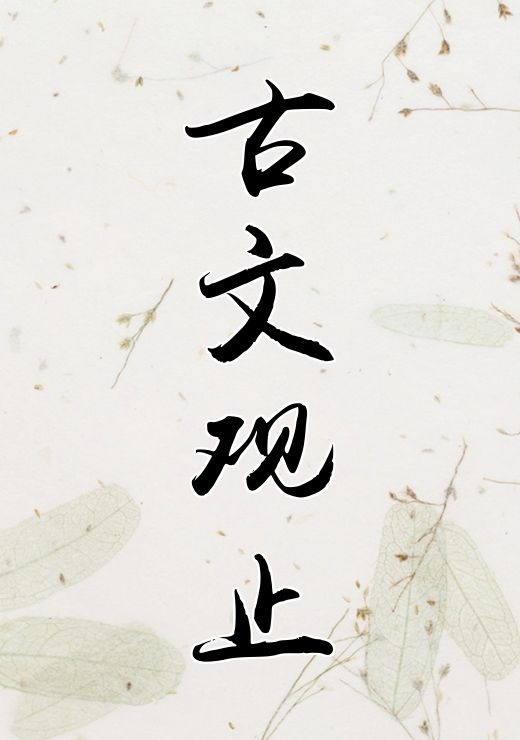 古文观止